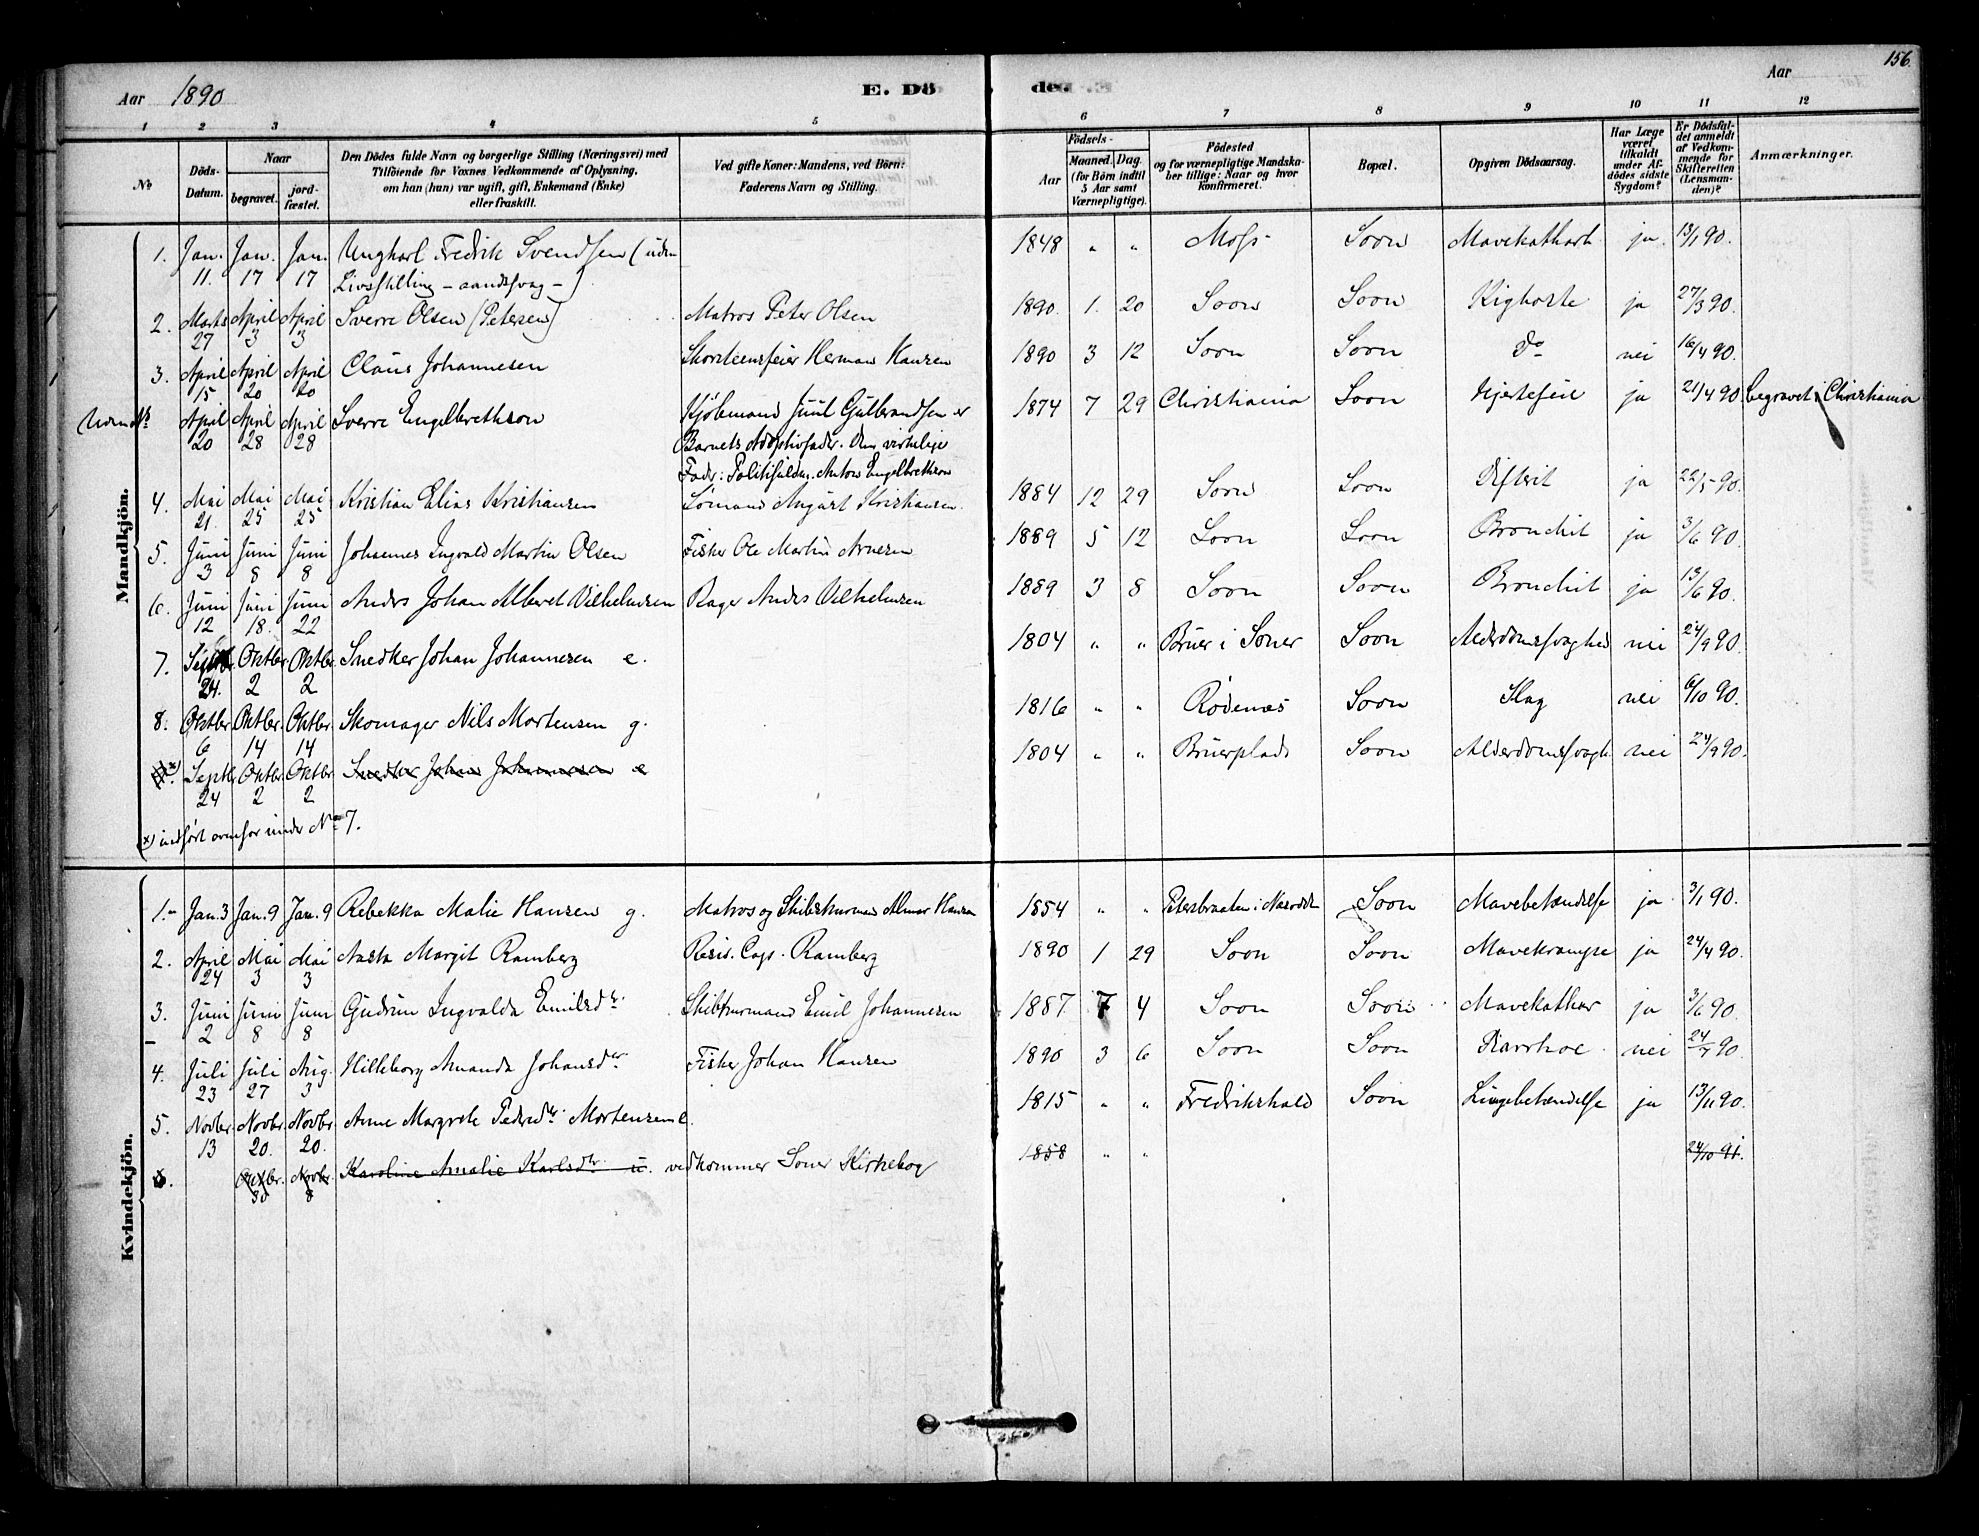 156.
Aar 1890
E. Dö
de.
Aar
1 2 3 4 5 6 7 8 9 10 11 12
No
Döds-Datum.
Naar
begravet.
jord-fæstet.
Den Dödes fulde Navn og borgerlige Stilling (Næringsvei) med
Tilföiende for Voxnes Vedkommende af Oplysning,
om han (hun) var ugift, gift, Enkemand (Enke)
eller fraskilt.
Ved gifte Koner: Mandens, ved Börn:
Faderens Navn og Stilling.
Födsels-
Aar
Maaned. Dag.
(for Börn indtil
5 Aar samt
Værnepligtige).
Födested
og for værnepligtige Mandska-
ber tillige: Naar og hvor
konfirmeret.
Bopæl.
Opgiven Dödsaarsag.
Har Læge
været
tilkaldt
under Af-
dödes sidste
Sygdom?
Er Dödsfal-
det anmeldt
af Vedkom-
mende for
Skifteretten
(Lensman-
den)?
Anmærkninger.
Mandkjön.
1. Jan. Jan. Jan. Ungkarl Fredrik Svendsen (uden 1848 " " Moss Soon Mavekatharh ja. 13/1 90.
11. 17 17 Livsstilling - aandssvag -)
2. Marts April April Sverre Olsen (Petersen) Matros Peter Olsen 1890. 1. 20 Soon Soon Kighoste ja 27/3 90.
27 3 3
3. April April April Claus Johannesen Skorsteensfeier Herman Hansen 1890 3 12 Soon Soon Do nei 16/4 90.
15 20 20
April April April Sverre Engelbrethson Kjöbmand Juul Gulbrandsen er 1874 7 29 Christiania Soon Hjertefeil ja 21/4 90. begravet i Christiania
20 28 28 Barnets Adoptivfader. Den virkelige
Fader: Politifuldm. Anton Engelbrethson
4. Mai Mai Mai Kristian Elias Kristiansen Sömand August Kristiansen. 1884 12 29 Soon Soon Difterit ja 22/5 90.
21. 25 25
5. Juni Juni Juni Johannes Ingvald Martin Olsen Fisker Ole Martin Arnesen 1889 5 12 Soon Soon Bronchit ja 3/6 90.
3 8 8
6. Juni Juni Juni Anders Johan Albert Vilhelmsen Bager Anders Vilhelmsen 1889 3 8 Soon Soon Bronchit ja 13/6 90.
12 18. 22
7. Septbr. Oktbr. Oktbr. Snedker Johan Johannesen e. 1804 " " Bruer i Soner Soon Alderdomssvaghed nei 24/9 90.
24. 2 2
8. Oktbr. Oktbr. Oktbr. Skomager Nils Mortensen g. 1816 " " Rödenæs Soon Slag nei 6/10 90.
6 14 14
x) Septbr. Oktbr. Oktbr. Snedker Johan Johannesen e 1804 " " Bruerplads Soon Alderdomssvagh. nei 24/9 90.
24 2 2
(x) indfört ovenfor under No 7.
Kvindekjön.
1.- Jan. 3 Jan. 9 Jan. 9 Rebekka Malie Hansen g. Matros og Skibstörmand Hansen 1854 " " Soon Mavebetændelse ja 3/1 90.
2. April Mai Mai Aasta Margit Ramberg Resis. Cap. Ramberg 1890 1 29 Soon Soon Mavekrampe ja 24/4 90.
24 3 3
3. Juni Juni Juni Gudrun Ingvalda Emilsdtr. Skibsturmand Emil Johannesen 1887. 7 4 Soon Soon Mavekathar ja 3/6 90.
2 8 8
4. Juli Juli Aug. Hilleborg Amanda Johansdtr Fisker Johan Hansen 1890 3 6 Soon Soon Diarrhoe. nei 24/7 90.
23 27 3
5. Novbr. Novbr. Novbr. Anne Margrete Pedersdtr. Mortensen e. 1815 " " Fredrikshald Soon Lungebetændelse ja 13/11 90.
13 20. 20.
6. Oktbr. Novbr. Karoline Amalie Karlsdtr. u. vedkommer Soner Kirkebog 1858 " " 24/10 91.
30 8